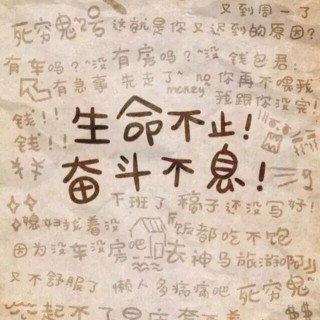 又到周一了
死穷鬼2号 这就是你又迟到的原因?
有车吗? 没有房吗? 没 钱包君:
有急事 先走了 no money 你再不喂我
我跟你没完!
钱!!
钱!!
生命不止!
奋斗不息!
下班了 稿子还没写好!
媳妇找着没 饭都吃不饱
因为没车没房吧 去神马旅游啊
又不舒服了 懒人多病痛吧 死穷鬼
起不了